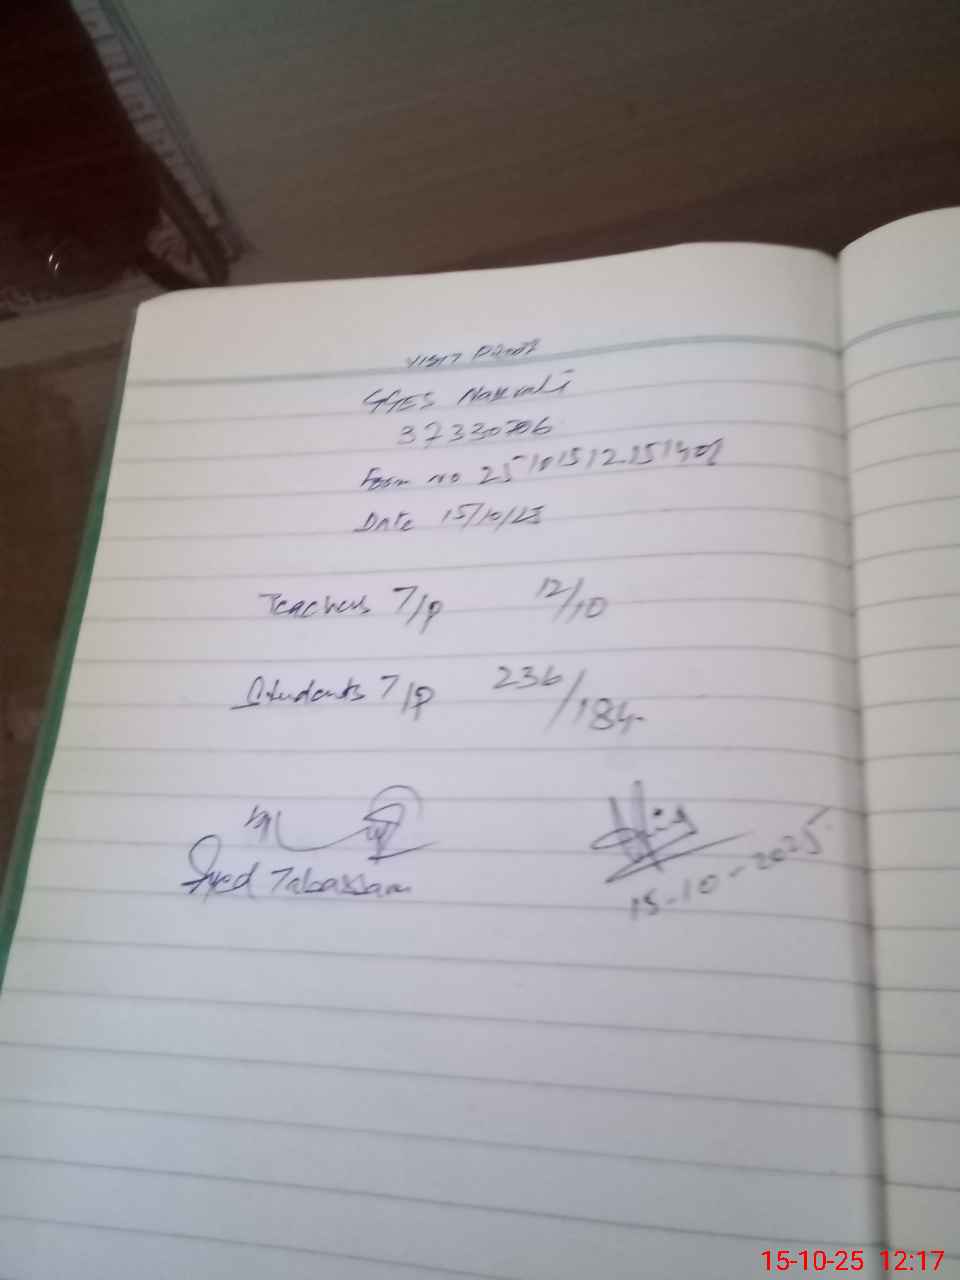 VISIT Proof
GGES Narrali
37330706
Form no 25101512151401
Date 15/10/25
Teachers T/P 12/10
Students T/P 236/184
Syed Tabassam
15-10-2025
15-10-25 12:17